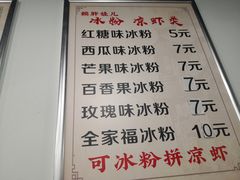 胖娃儿
冰粉 凉虾类
红糖味冰粉 5元
西瓜味冰粉 7元
芒果味冰粉 7元
百香果冰粉 7元
玫瑰味冰粉 7元
全家福冰粉 10元
可冰粉拼凉虾